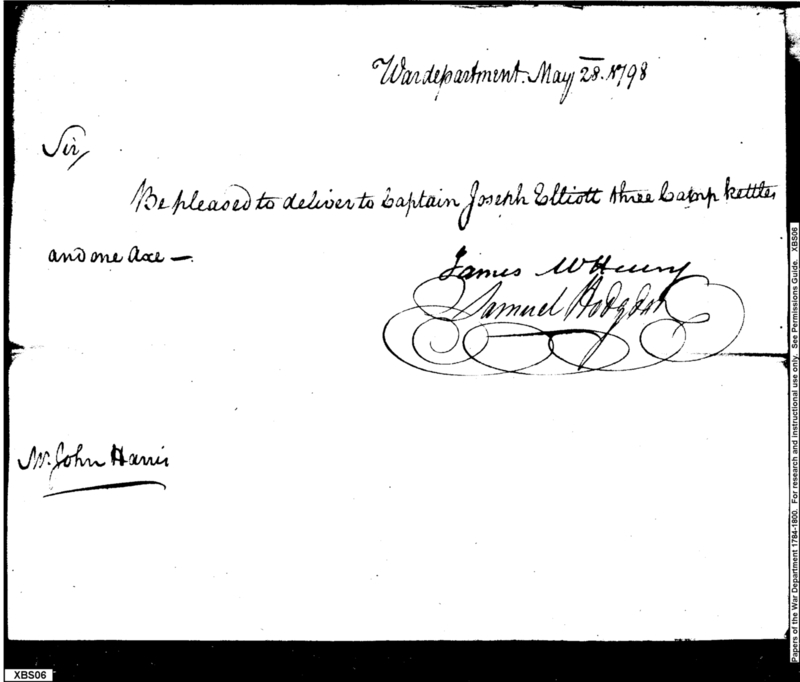 War department. May 28. 1798
Sir,
Be pleased to deliver to Captain Joseph Elliott three Camp kettles
and one Axe —
James McHenry
Samuel Hodgdon
Mr. John Harris
Papers of the War Department 1784-1800. For research and instructional use only. See Permissions Guide. XBS06
XBS06